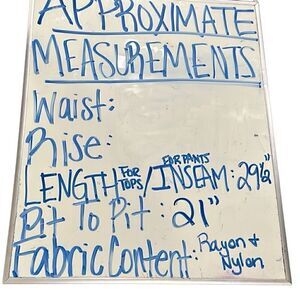 APPROXIMATE
MEASUREMENTS
Waist:
Rise:
LENGTH FOR TOPS / INSEAM FOR PANTS : 29½"
Pit To Pit : 21"
Fabric Content: Rayon + Nylon